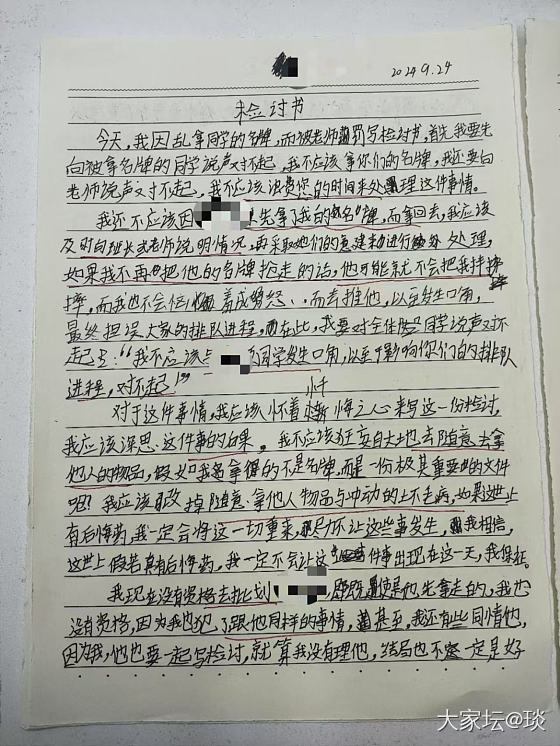 2024.9.24
检讨书
今天,我因乱拿同学的名牌,而被老师罚写检讨书,首先我要先
向被拿名牌的同学说声对不起,我不应该拿你们的名牌,我还要向
老师说声对不起,我不应该浪费您的时间来处理这件事情。
我还不应该因 先拿了我的名牌,而拿回去,我应该
及时向班长或老师说明情况,再采取她们的建进行处理,
如果我不再把他的名牌抢走的话,他可能就不会把我摔
摔,而我也不会恼羞成怒、,而去推他,以至发生口角,
最终担误大家的排队进程,而在此,我要对全体同学说声对不
起:“我不应该与 同学发生口角,以至于影响你们的排队
进程,对不起!”
对于这件事情,我应该怀着忏悔之心来写这一份检讨,
我应该深思这件事的后果。我不应该狂妄自大地去随意去拿
他人的物品,假如我拿的不是名牌,而是一份极其重要的文件
呢?我应该改掉随意拿他人物品与冲动的毛病,如果这世上
有后悔药,我一定会将这一切重来,尽力不让这些事发生,我相信,
这世上假若真有后悔药,我一定不会让这件事出现在这一天,我保证。
我现在没有资格去批划 ,即使是他先拿走的,我也
没有资格,因为我也犯了跟他同样的事情,甚至,我还有些同情他,
因为我,他也要一起写检讨,就算我没有理他,结局也不一定是好
大家坛@琰